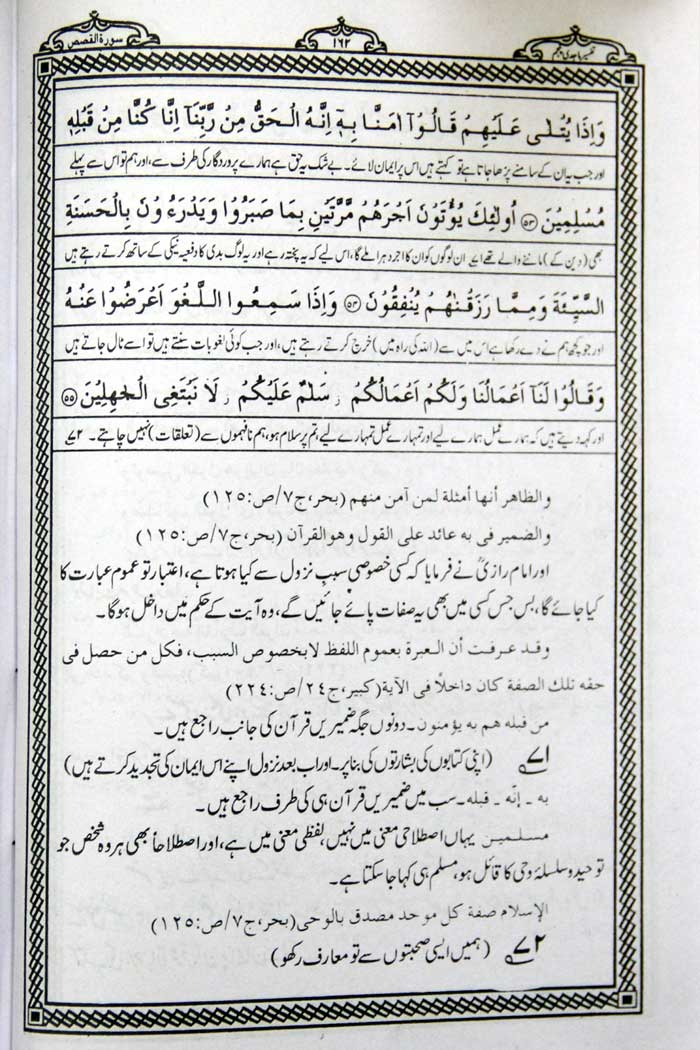 تفسیر ماجدی پنجم
۱۶۲
سورۃ القصص
وَاِذَا یُتْلٰی عَلَیْهِمْ قَالُوْۤا اٰمَنَّا بِهٖۤ اِنَّهُ الْحَقُّ مِنْ رَّبِّنَاۤ اِنَّا كُنَّا مِنْ قَبْلِهٖ
اور جب یہ ان کے سامنے پڑھا جاتا ہے تو کہتے ہیں اس پر ایمان لائے۔ بے شک یہ حق ہے ہمارے پروردگار کی طرف سے، اور ہم تو اس سے پہلے
مُسْلِمِیْنَ ﴿۵۳﴾ اُولٰٓئِكَ یُؤْتَوْنَ اَجْرَهُمْ مَّرَّتَیْنِ بِمَا صَبَرُوْا وَیَدْرَءُوْنَ بِالْحَسَنَةِ
بھی (دین کے) ماننے والے تھے ۷۱ ان لوگوں کو ان کا اجر دہرا ملے گا، اس لیے کہ یہ پختہ رہے اور یہ لوگ بدی کا دفعیہ نیکی کے ساتھ کرتے رہتے ہیں
السَّیِّئَةَ وَمِمَّا رَزَقْنٰهُمْ یُنْفِقُوْنَ ﴿۵۴﴾ وَاِذَا سَمِعُوا اللَّغْوَ اَعْرَضُوْا عَنْهُ
اور جو کچھ ہم نے دے رکھا ہے اس میں سے (اللہ کی راہ میں) خرچ کرتے رہتے ہیں، اور جب کوئی لغو بات سنتے ہیں تو اسے ٹال جاتے ہیں
وَقَالُوْا لَنَاۤ اَعْمَالُنَا وَلَكُمْ اَعْمَالُكُمْ ؗ سَلٰمٌ عَلَیْكُمْ ؗ لَا نَبْتَغِی الْجٰهِلِیْنَ ﴿۵۵﴾
اور کہہ دیتے ہیں کہ ہمارے عمل ہمارے لیے اور تمہارے عمل تمہارے لیے، تم پر سلام ہو، ہم نا فہموں سے (تعلقات) نہیں چاہتے۔ ۷۲
والظاهر أنها أمثلة لمن آمن منهم (بحر،ج۷/ص:۱۲۵)
والضمیر فی به عائد علی القول وهو القرآن (بحر،ج۷/ص:۱۲۵)
اور امام رازیؒ نے فرمایا کہ کسی خصوصی سبب نزول سے کیا ہوتا ہے، اعتبار تو عموم عبارت کا
کیا جائے گا، بس جس کسی میں بھی یہ صفات پائے جائیں گے، وہ آیت کے حکم میں داخل ہوگا۔
وقد عرفت أن العبرة بعموم اللفظ لا بخصوص السبب، فكل من حصل فی
حقه تلك الصفة كان داخلاً فی الآیة (كبیر،ج۲۴/ص:۲۲۴)
من قبله هم به یؤمنون۔ دونوں جگہ ضمیریں قرآن کی جانب راجع ہیں۔
۷۱ (اپنی کتابوں کی بشارتوں کی بنا پر۔ اور اب بعد نزول اپنے اس ایمان کی تجدید کرتے ہیں)
به ۔ إنّه ۔ قبله۔ سب میں ضمیریں قرآن ہی کی طرف راجع ہیں۔
مسلمین یہاں اصطلاحی معنی میں نہیں، لفظی معنی میں ہے، اور اصطلاحاً بھی ہر وہ شخص جو
توحید و سلسلۂ وحی کا قائل ہو، مسلم ہی کہا جا سکتا ہے۔
الإسلام صفة كل موحد مصدق بالوحی (بحر،ج۷/ص:۱۲۵)
۷۲ (ہمیں ایسی صحبتوں سے تو معاف رکھو)